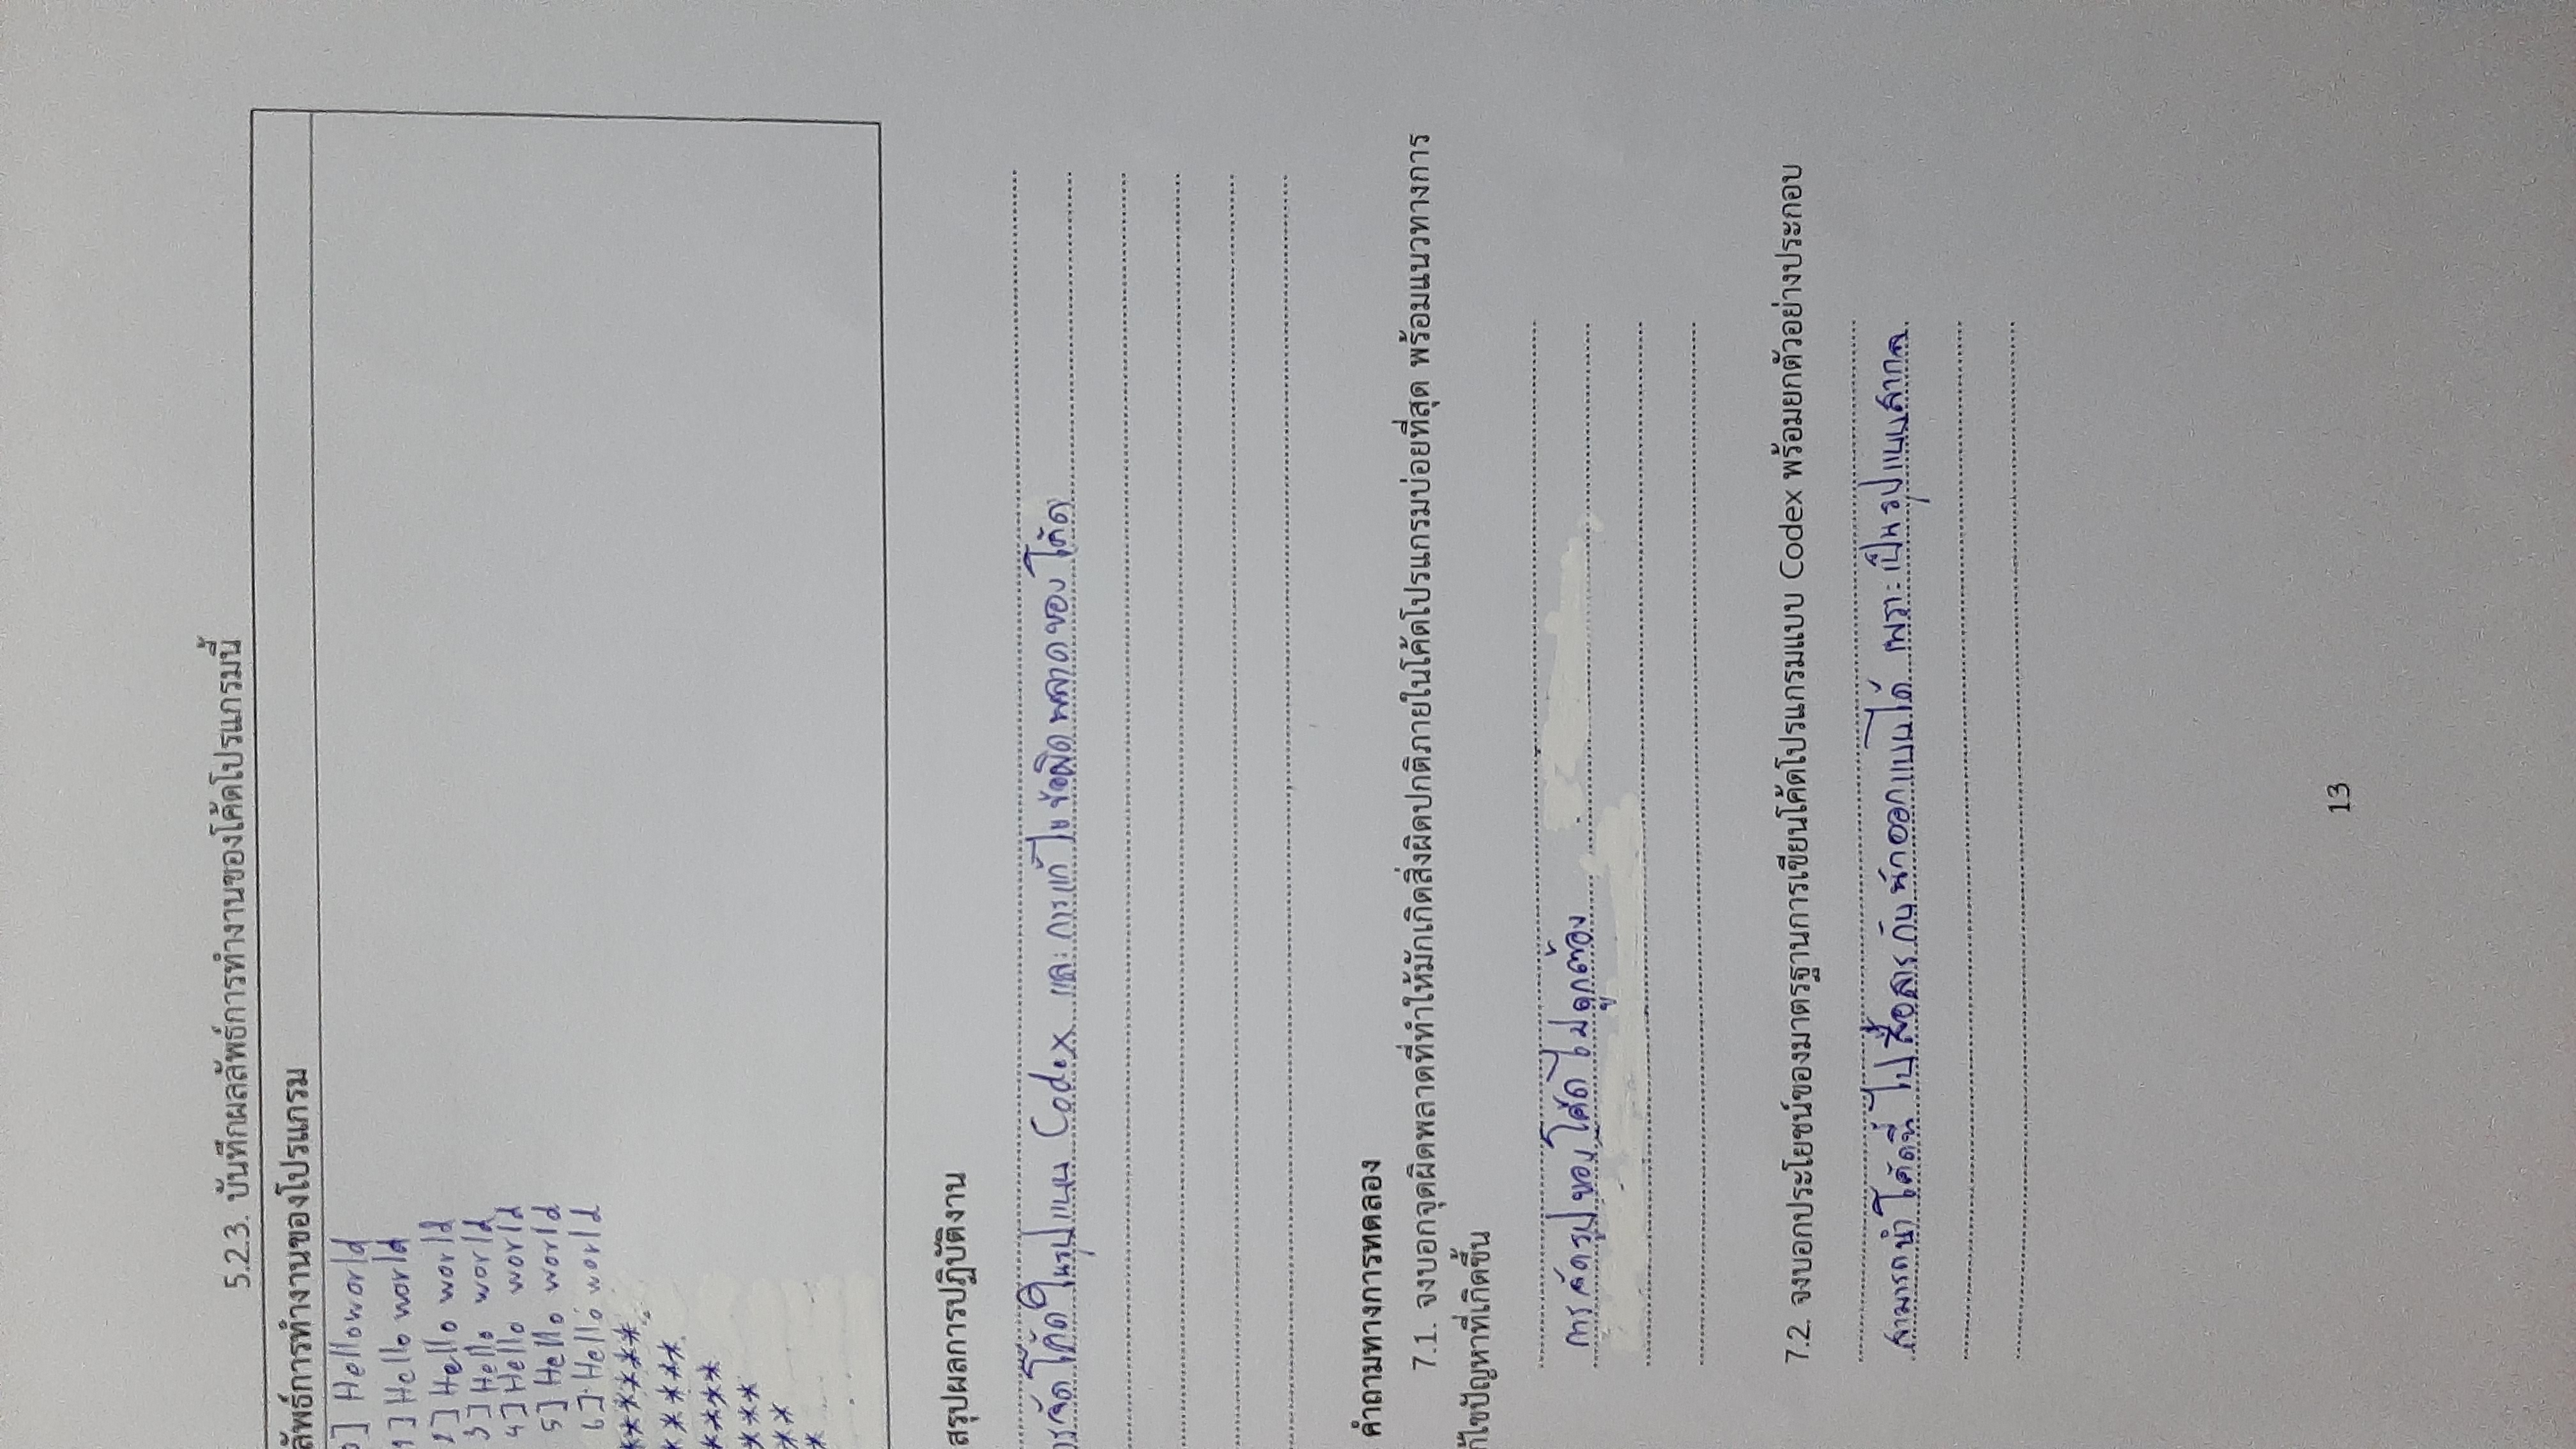 5.2.3. บันทึกผลลัพธ์การทำงานของโค้ดโปรแกรมนี้
ลัพธ์การทำงานของโปรแกรม
0] Helloworld
1] Hello world
2] Hello world
3] Hello world
4] Hello world
5] Hello world
6] Hello world
******
*****
****
***
**
*
สรุปผลการปฏิบัติงาน
ารจัดโค้ดในรูปแบบ Codex และการแก้ไขข้อผิดพลาดของโค้ด
คำถามทางการทดลอง
7.1. จงบอกจุดผิดพลาดที่ทำให้มักเกิดสิ่งผิดปกติภายในโค้ดโปรแกรมบ่อยที่สุด พร้อมแนวทางการ
ก้ไขปัญหาที่เกิดขึ้น
การจัดรูปของโค้ดไม่ถูกต้อง
7.2. จงบอกประโยชน์ของมาตรฐานการเขียนโค้ดโปรแกรมแบบ Codex พร้อมยกตัวอย่างประกอบ
สามารถนำโค้ดนี้ไปสื่อสารกับนักออกแบบได้ เพราะเป็นรูปแบบสากล
13